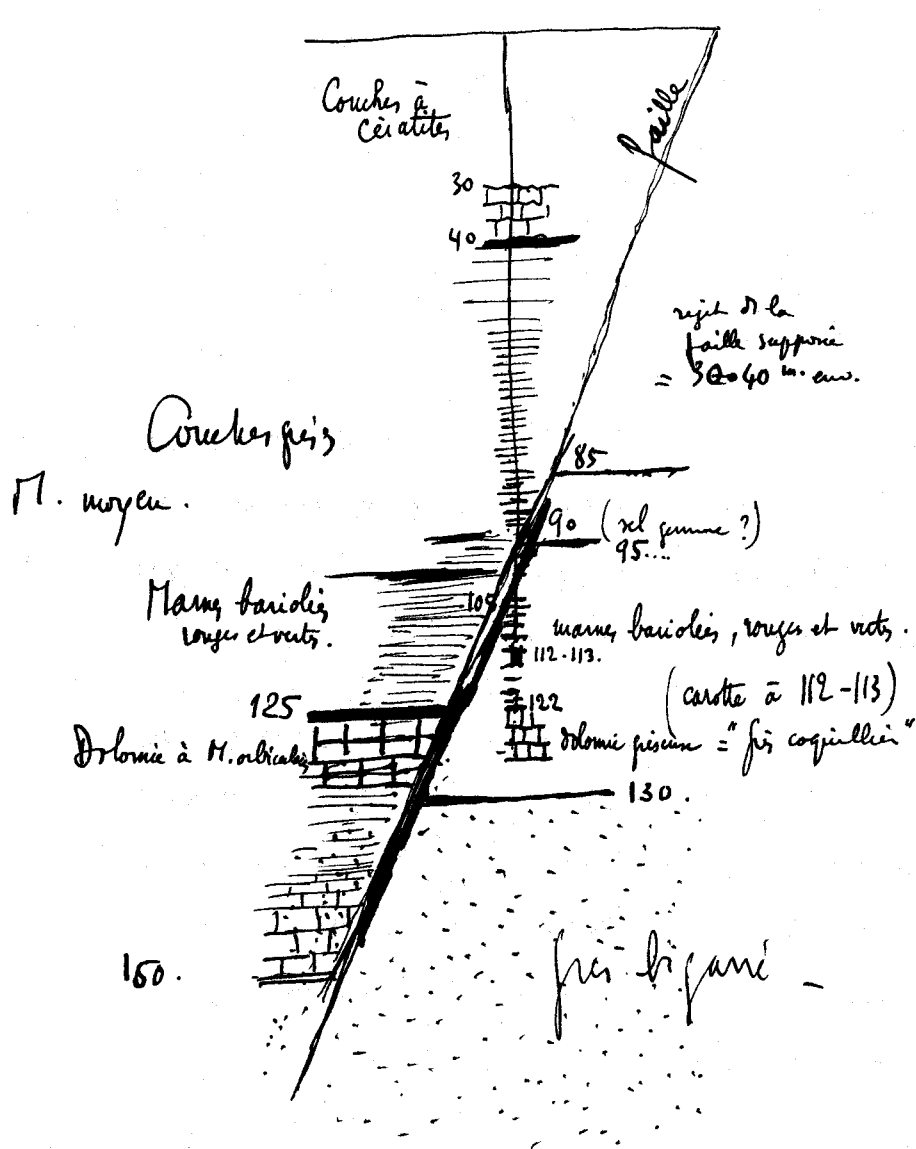 Couches à
Cératites
faille
30
40
rejet de la
faille supposé
= 30-40 m. env.
Couches grises
M. moyen.
85
90 (sel gemme ?)
95...
Marnes bariolées
rouges et verts.
105
marnes bariolées, rouges et verts.
112-113.
(carotte à 112-113)
125
122
Dolomie à M. orbicularis
dolomie gréseuse = "grès coquillier"
130.
150.
grès bigarré